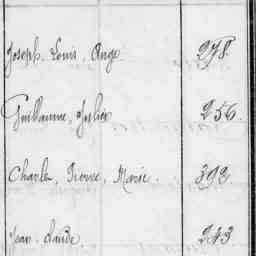 Joseph, Louis, Ange 278.
Guillaume, Julien 256.
Charles, Pierre, Marie. 392.
Jean Claude 243